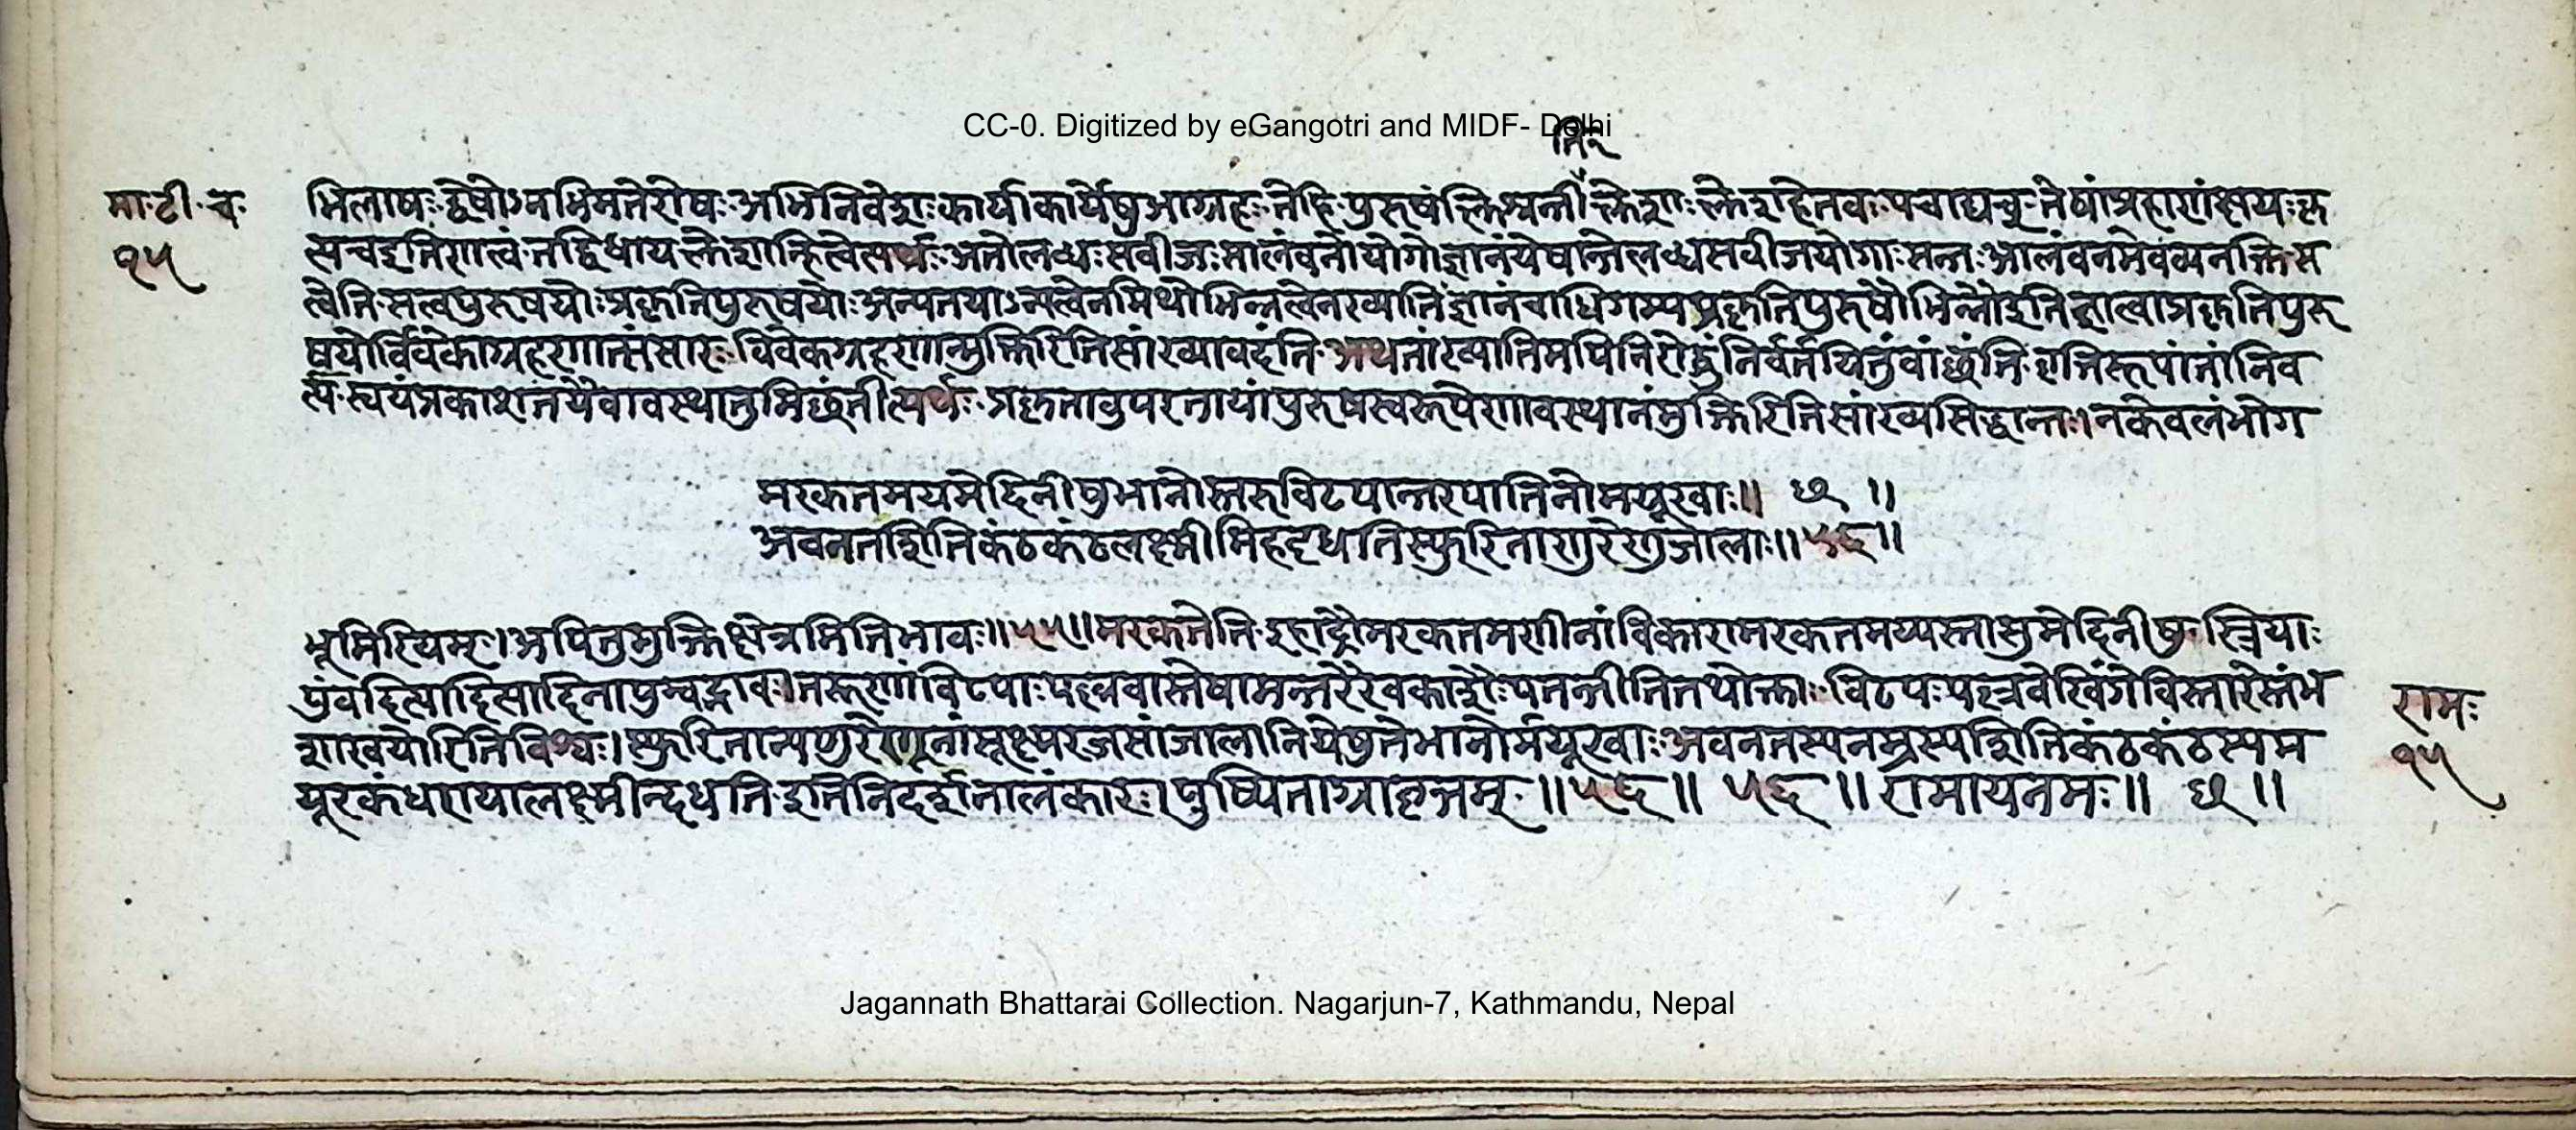 CC-0. Digitized by eGangotri and MIDF- Delhi
मा॰टी॰च॰
१५
भिलाषः द्वेषोऽनभिमतेरोषः अभिनिवेशः कार्याकार्येषुआग्रहः तेहि पुरूषं क्लिश्नन्तीतिक्लेशाः क्लेशहेतवः पचाद्यच् तेषांप्रहाणंक्षयःकृ
त्यचइतिशत्वं तद्विधायक्लेशान्हित्वेत्यर्थः अतोलब्धः सवीजः सालंवनोयोगोज्ञानंयेषान्तेलब्धसवीजयोगाः सन्तः आलंवनमेवव्यनक्ति स
त्वेति सत्वपुरूषयोः प्रकृतिपुरुषयोः अन्यतयाऽन्यत्वेनमिथोभिन्नत्वेनख्यातिंज्ञानंचाधिगम्य प्रकृतिपुरुषौभिन्नौइतिज्ञात्वाप्रकृतिपुरू
षयोर्विवेकाग्रहणात्संसारः विवेकग्रहणान्मुक्तिरितिसांख्यावदंति अथतांख्यातिमपिनिरोद्धुंनिर्वर्तयितुंवांछंति वृत्तिरूपांतांनिव
र्त्य स्वयंप्रकाशतयैवावस्थातुमिछंतीत्यर्थः प्रकृतावुपरतायांपुरुषस्वरूपेणावस्थानंमुक्तिरितिसांख्यसिद्धान्तः। नकेवलंभोग
मरकतमयमेदिनीषुभानोस्तरुविटपान्तरपातिनोमयूखाः॥ छ ॥
अवनतशितिकंठकंठलक्ष्मीमिहदधतिस्फुरिताणुरेणुजालाः॥५६॥
भूमिरियम्। अपितुमुक्तिक्षेत्रमितिभावः॥५५॥ मरकतेति इहाद्रौमरकतमणीनांविकारामरकतमय्यस्तासुमेदिनीषु स्त्रियाः
पुंवदित्यादिसादिनापुम्वद्भावः। तरूणांविटपाः पल्लवास्तेषामन्तरैरवकाशैः पतन्तीतितथोक्ताः विटपः पल्लवेखिंगेविस्तारेस्तंभ
शाखयोरितिविश्वः। स्फुरितान्यणुरेणूनांसूक्ष्मरजसांजालानियेषुतेभानोर्मयूखाः अवनतस्यनम्रस्यशितिकंठकंठस्यम
यूरकंधरायालक्ष्मीन्दधति इतिनिदर्शनालंकारः। पुष्पिताग्रावृत्तम् ॥५६॥ ५६ ॥ रामायनमः॥ छ ॥
रामः
१५
Jagannath Bhattarai Collection. Nagarjun-7, Kathmandu, Nepal